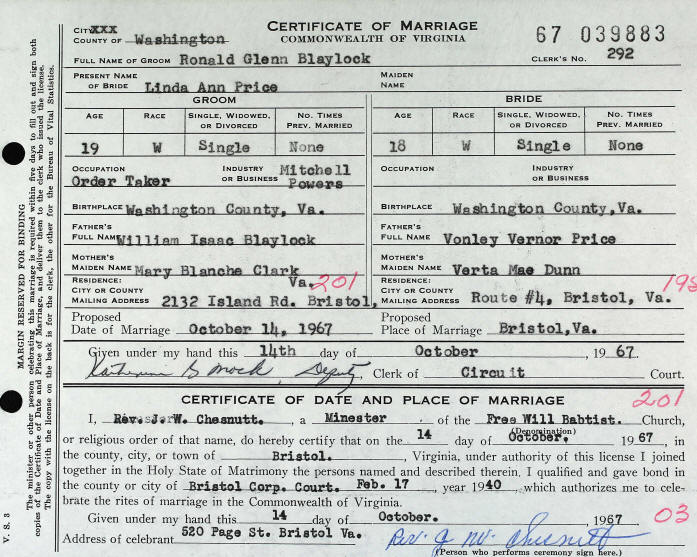 CITY XXX
COUNTY OF Washington
CERTIFICATE OF MARRIAGE
COMMONWEALTH OF VIRGINIA
67 039883
FULL NAME OF GROOM Ronald Glenn Blaylock
CLERK'S NO. 292
PRESENT NAME OF BRIDE Linda Ann Price
MAIDEN NAME
GROOM
BRIDE
AGE RACE SINGLE, WIDOWED, OR DIVORCED NO. TIMES PREV. MARRIED
AGE RACE SINGLE, WIDOWED, OR DIVORCED NO. TIMES PREV. MARRIED
19 W Single None
18 W Single None
OCCUPATION Order Taker INDUSTRY OR BUSINESS Mitchell Powers
OCCUPATION INDUSTRY OR BUSINESS
BIRTHPLACE Washington County, Va.
BIRTHPLACE Washington County, Va.
FATHER'S FULL NAME William Isaac Blaylock
FATHER'S FULL NAME Vonley Vernor Price
MOTHER'S MAIDEN NAME Mary Blanche Clark
MOTHER'S MAIDEN NAME Verta Mae Dunn
RESIDENCE: CITY OR COUNTY Va. 201
MAILING ADDRESS 2132 Island Rd. Bristol,
RESIDENCE: CITY OR COUNTY 198
MAILING ADDRESS Route #4, Bristol, Va.
Proposed Date of Marriage October 14, 1967
Proposed Place of Marriage Bristol, Va.
Given under my hand this 14th day of October, 1967.
Katherine S Mock, Deputy, Clerk of Circuit Court.
CERTIFICATE OF DATE AND PLACE OF MARRIAGE
201
I, Rev. J.W. Chesnutt. , a Minester , of the Free Will Babtist. Church,
(Denomination)
or religious order of that name, do hereby certify that on the 14 day of October. 1967, in
the county, city, or town of Bristol. , Virginia, under authority of this license I joined
together in the Holy State of Matrimony the persons named and described therein. I qualified and gave bond in
the county or city of Bristol Corp. Court. Feb. 17 , year 1940, which authorizes me to cele-
brate the rites of marriage in the Commonwealth of Virginia.
Given under my hand this 14 day of October. , 1967
03
Address of celebrant 520 Page St. Bristol Va.
Rev. J W. Chesnutt
(Person who performs ceremony sign here.)
MARGIN RESERVED FOR BINDING
The minister or other person celebrating this marriage is required within five days to fill out and sign both
copies of the Certificate of Date and Place of Marriage, and deliver them to the clerk who issued the license.
The copy with the license on the back is for the clerk, the other for the Bureau of Vital Statistics.
V. S. 3